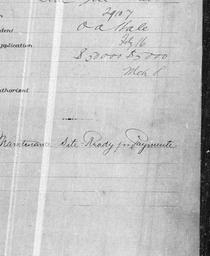 2907
dent
O A Hale
Feb 16
pplication
$ 5000 $ 5000
Mch 8
uthorized
Maintenance Site - Ready for Payments